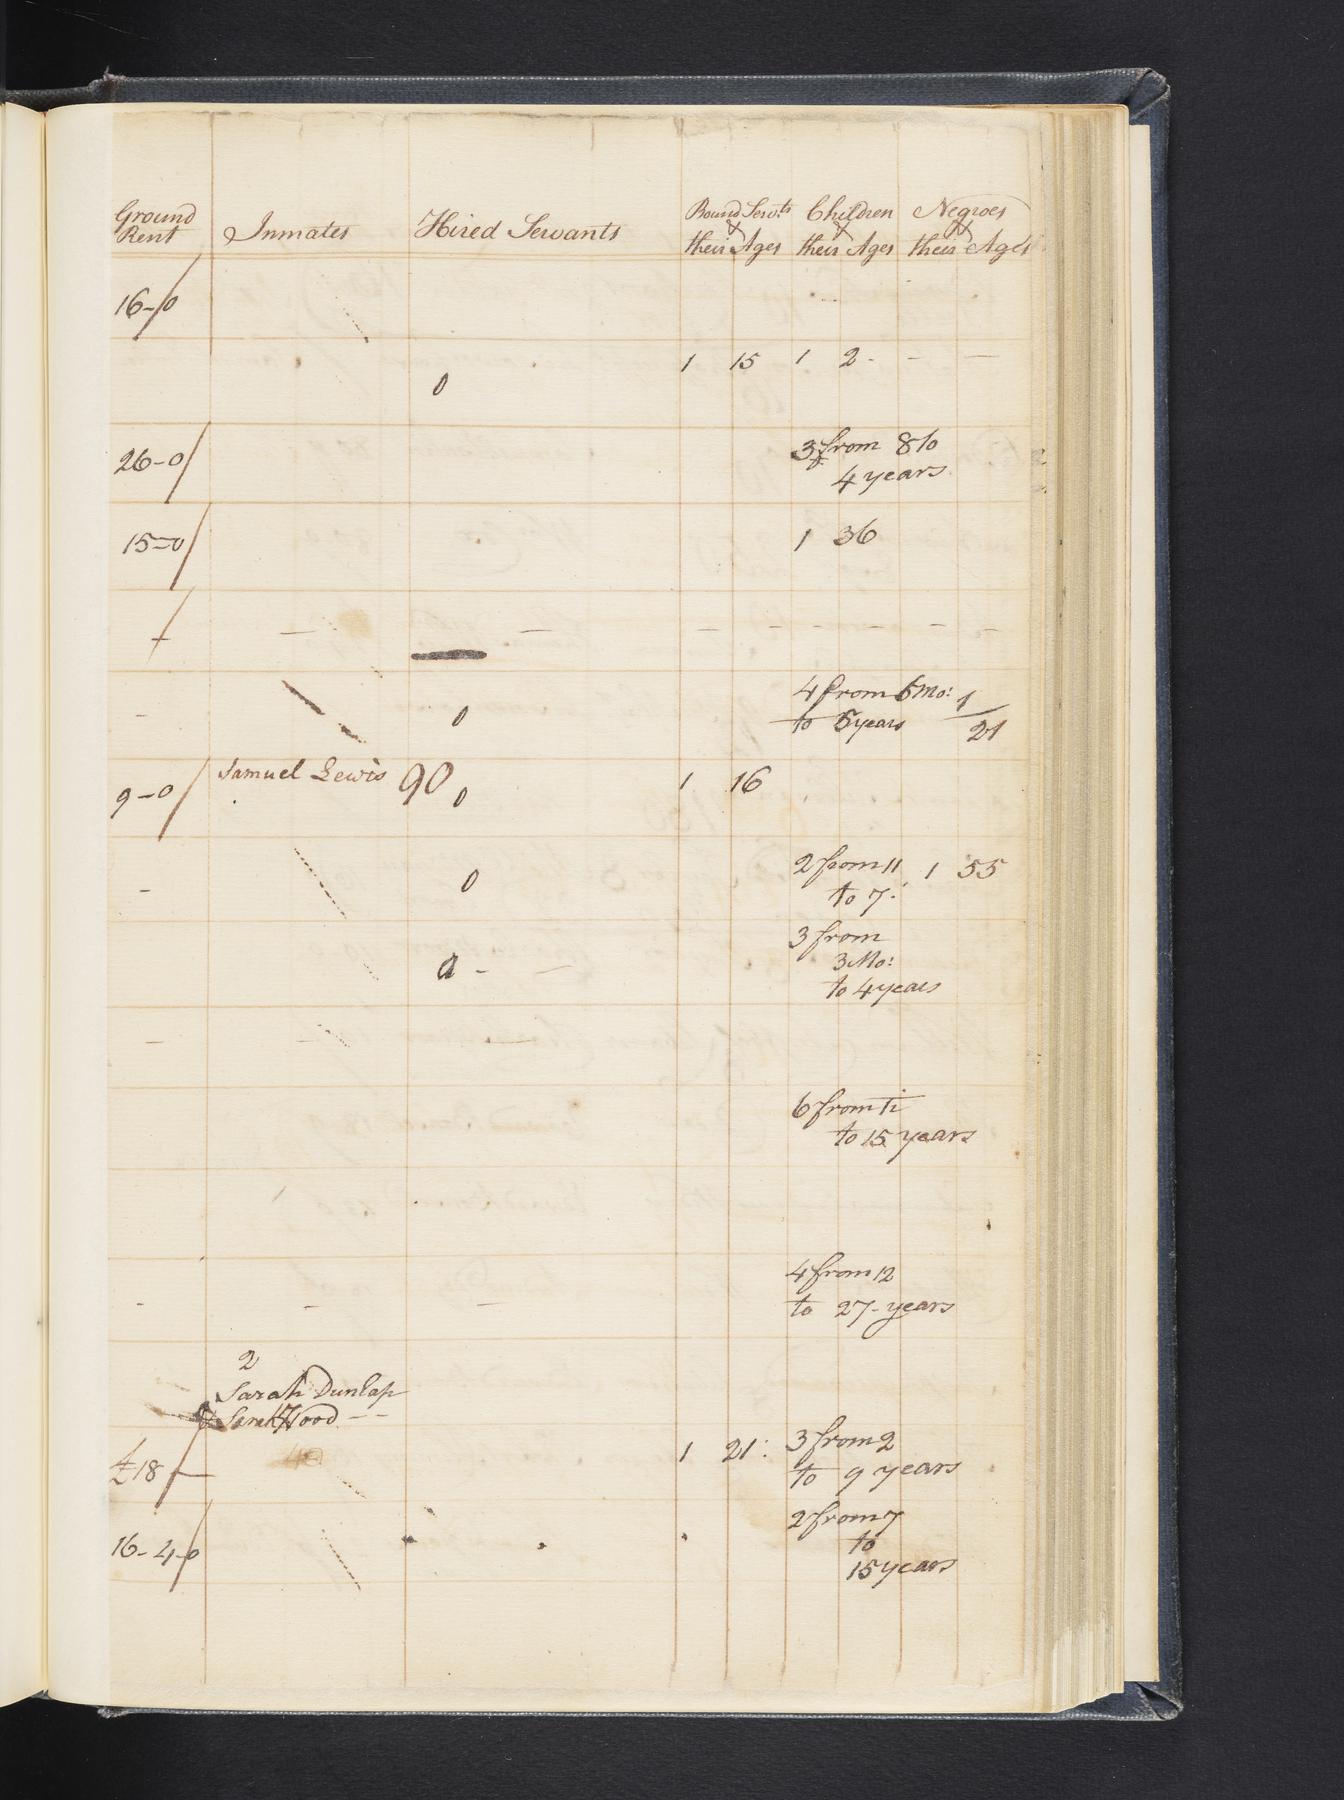 Ground Rent | Inmates | Hired Servants | Bound Servts & their Ages | Children & their Ages | Negroes & their Ages
16-0
1 15 1 2 - - —
0
26-0 3 from 8 to
4 years
15=0 1 36
— — — — - - - - -
4 from 6 Mo: 1
- 0 to 5 years 21
Samuel Lewis 90 1 16
9-0 0
2 from 11 1 55
- 0 to 7:
3 from
0 - — 3 Mo:
to 4 years
— - —
6 from
to 15 years
4 from 12
- - — to 27 - years
2
Sarah Dunlap
& Sarah Wood - -
1 21: 3 from 2
£18 — to 9 years
2 from 7
16-4-0 to
15 years